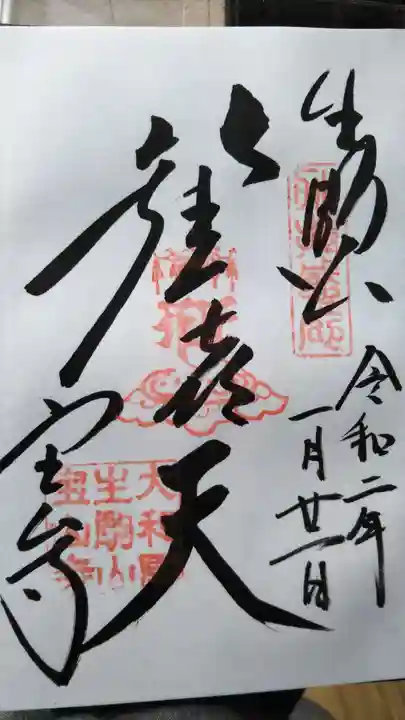 生駒山
令和二年
一月廿一日
歓喜天
宝山寺
大和國
生駒山
宝山寺